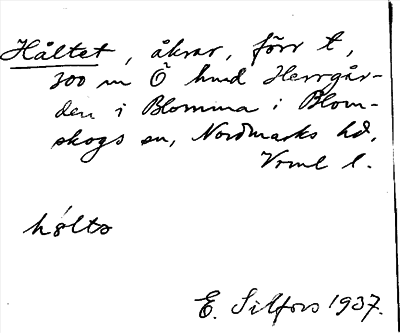 Håltet, åkrar, förr t,
300 m Ö hmd Herrgår-
den i Blomma i Blom-
skogs sn, Nordmarks hd,
Vrml l.
hǿlta
E. Silfors 1937.